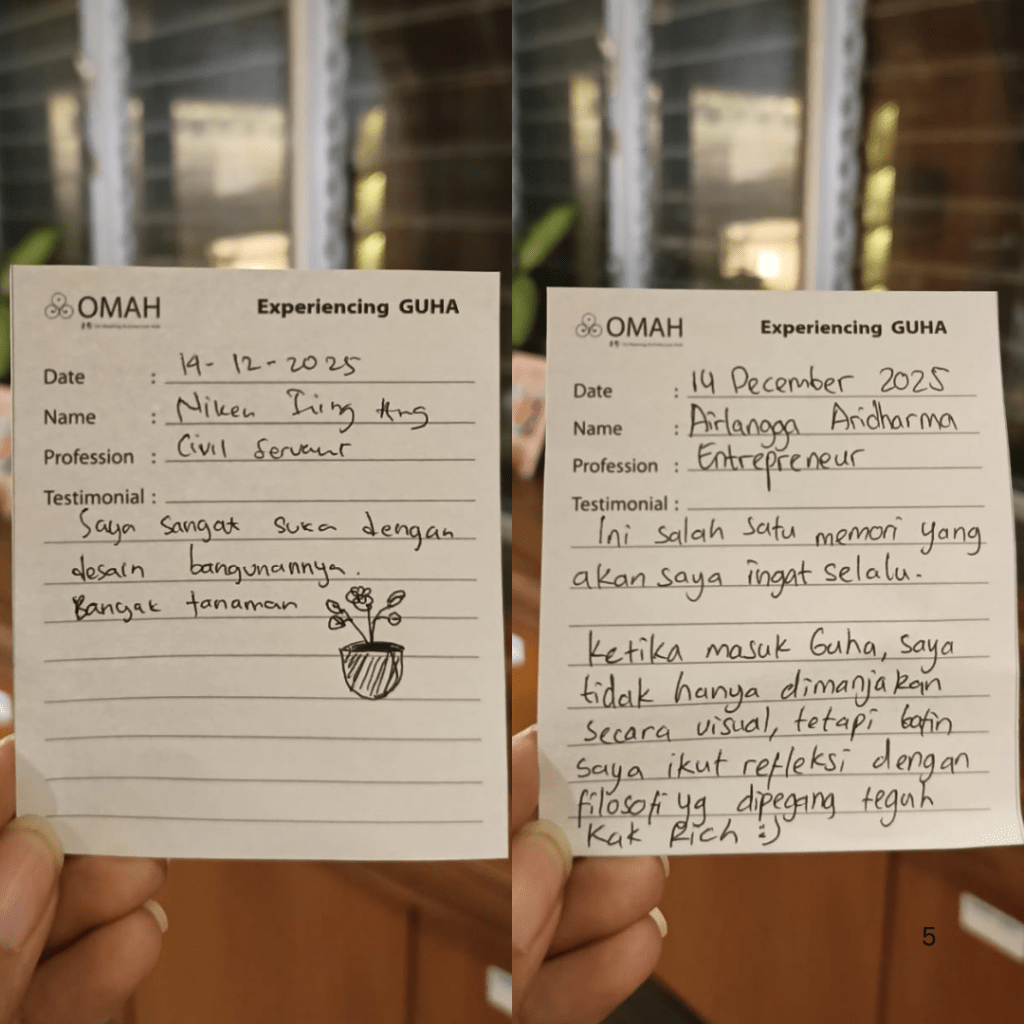 OMAH
Experiencing GUHA
Date : 14-12-2025
Name : Niken
Profession : Civil Servant
Testimonial :
Saya sangat suka dengan
desain bangunannya.
Bangak tanaman
OMAH
Experiencing GUHA
Date : 14 December 2025
Name : Airlangga Aridharma
Profession : Entrepreneur
Testimonial :
Ini salah satu memori yang
akan saya ingat selalu.
Ketika masuk Guha, saya
tidak hanya dimanjakan
secara visual, tetapi batin
saya ikut refleksi dengan
filosofi yg dipegang teguh
Kak Rich :)
5